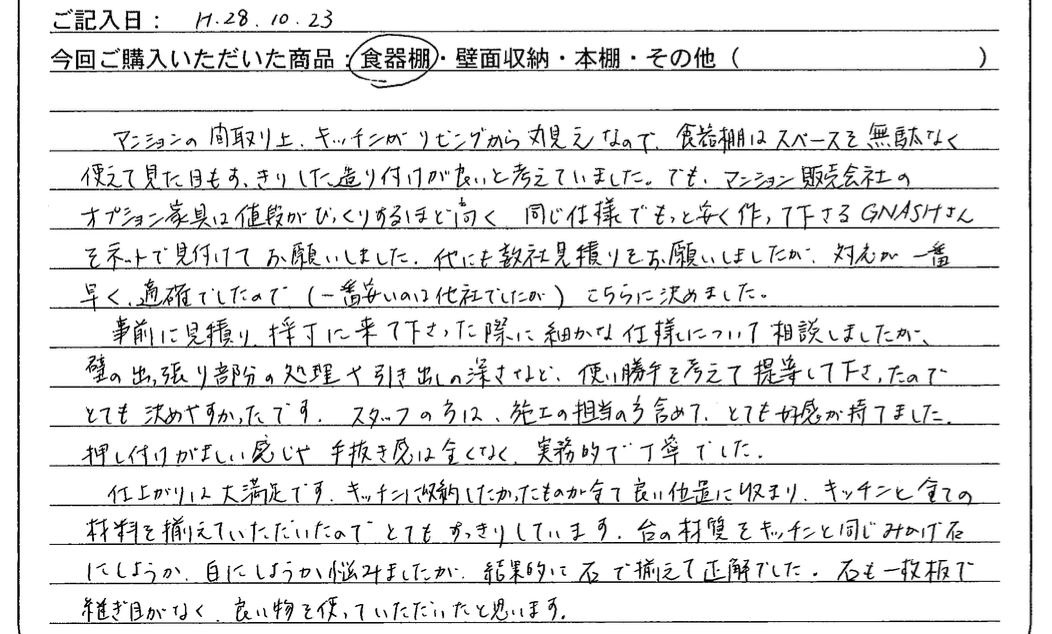 ご記入日： H.28.10.23
今回ご購入いただいた商品：食器棚・壁面収納・本棚・その他（　　　　　　　　　）
マンションの間取り上、キッチンがリビングから丸見えなので、食器棚はスペースを無駄なく
使えて見た目もすっきりした造り付けが良いと考えていました。でも、マンション販売会社の
オプション家具は値段がびっくりするほど高く 同じ仕様でもっと安く作って下さるGNASHさん
をネットで見付けてお願いしました。他にも数社見積りをお願いしましたが、対応が一番
早く、適確でしたので（一番安いのは他社でしたが）こちらに決めました。
事前に見積り、採寸に来て下さった際に細かな仕様について相談しましたが、
壁の出っ張り部分の処理や引き出しの深さなど、使い勝手を考えて提案して下さったので
とても決めやすかったです。スタッフの方は、施工の担当の方含めて、とても好感が持てました。
押し付けがましい感じや手抜き感は全くなく、実務的で丁寧でした。
仕上がりは大満足です。キッチンに収納したかったものが全て良い位置に収まり、キッチンと全ての
材料を揃えていただいたのでとてもすっきりしています。台の材質をキッチンと同じみかげ石
にしようか、白にしようか悩みましたが、結果的に石で揃えて正解でした。石も一枚板で
継ぎ目がなく、良い物を使っていただいたと思います。